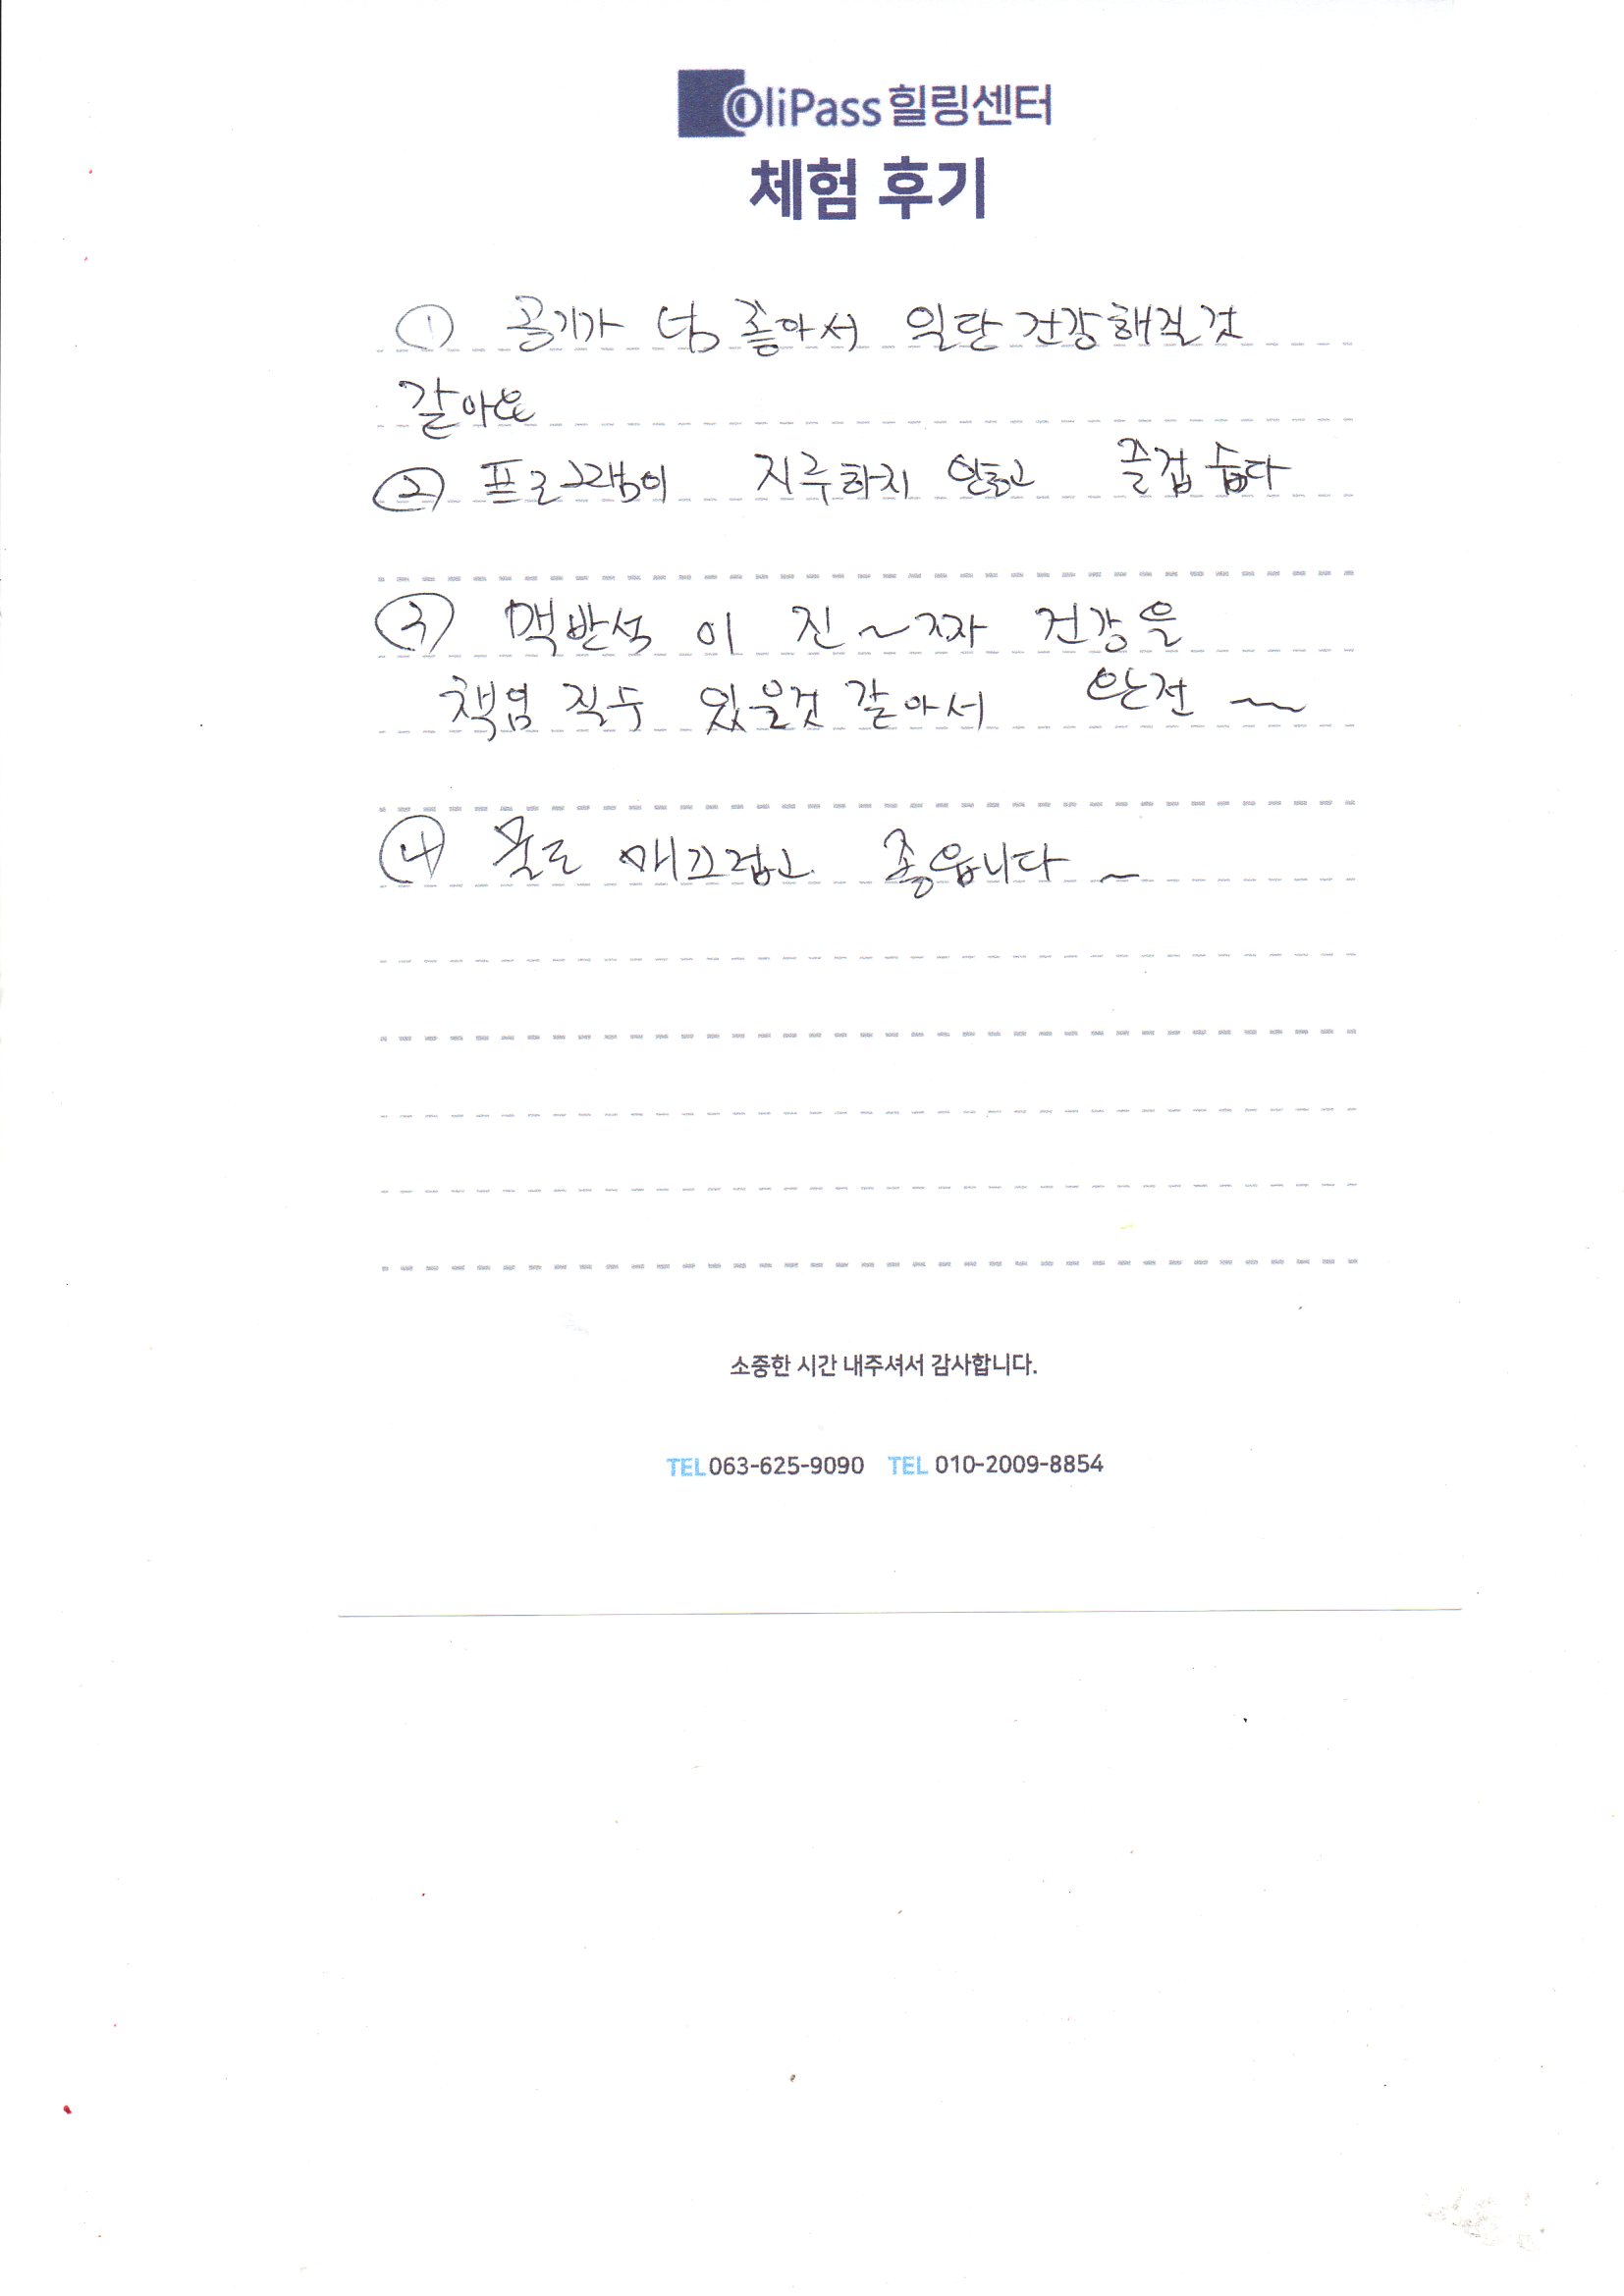 OliPass 힐링센터
체험 후기
① 공기가 넘 좋아서 일단 건강해질것
같아요
② 프로그램이 지루하지 않고 즐겁습다
③ 맥반석이 진~짜 건강을
책임 질수 있을것 같아서 완전 ~
④ 물도 매끄럽고 좋읍니다 ~
소중한 시간 내주셔서 감사합니다.
TEL 063-625-9090 TEL 010-2009-8854